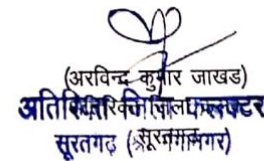 (अरविन्द कुमार जाखड)
अतिरिक्त जिला कलक्टर
सूरतगढ़ (श्रीगंगानगर)